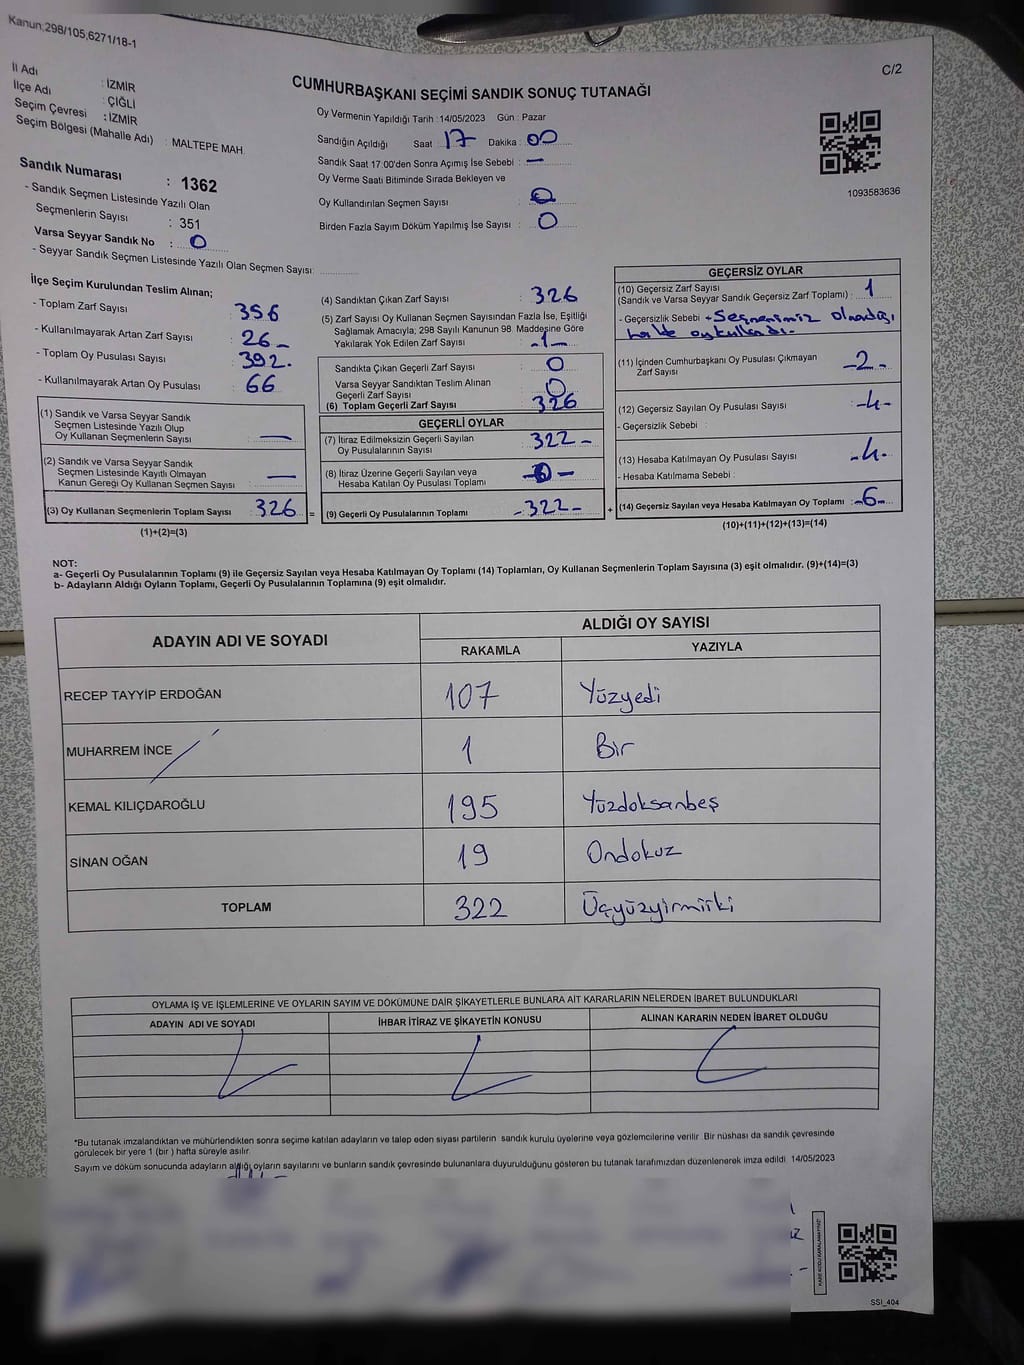 Kanun;298/105,6271/18-1
C/2
İl Adı : İZMİR
İlçe Adı : ÇİĞLİ
Seçim Çevresi : İZMİR
Seçim Bölgesi (Mahalle Adı) : MALTEPE MAH.
CUMHURBAŞKANI SEÇİMİ SANDIK SONUÇ TUTANAĞI
Oy Vermenin Yapıldığı Tarih :14/05/2023 Gün : Pazar
Sandığın Açıldığı Saat : 17 Dakika : 00
Sandık Saat 17:00'den Sonra Açımış İse Sebebi : —
Oy Verme Saati Bitiminde Sırada Bekleyen ve
Oy Kullandırılan Seçmen Sayısı : 0
Birden Fazla Sayım Döküm Yapılmış İse Sayısı : 0
1093583636
Sandık Numarası : 1362
- Sandık Seçmen Listesinde Yazılı Olan
Seçmenlerin Sayısı : 351
Varsa Seyyar Sandık No : 0
- Seyyar Sandık Seçmen Listesinde Yazılı Olan Seçmen Sayısı:
İlçe Seçim Kurulundan Teslim Alınan;
- Toplam Zarf Sayısı : 356
- Kullanılmayarak Artan Zarf Sayısı : 26-
- Toplam Oy Pusulası Sayısı : 392.
- Kullanılmayarak Artan Oy Pusulası : 66
(1) Sandık ve Varsa Seyyar Sandık
Seçmen Listesinde Yazılı Olup
Oy Kullanan Seçmenlerin Sayısı : —
(2) Sandık ve Varsa Seyyar Sandık
Seçmen Listesinde Kayıtlı Olmayan
Kanun Gereği Oy Kullanan Seçmen Sayısı : —
(3) Oy Kullanan Seçmenlerin Toplam Sayısı : 326 =
(1)+(2)=(3)
(4) Sandıktan Çıkan Zarf Sayısı : 326
(5) Zarf Sayısı Oy Kullanan Seçmen Sayısından Fazla İse, Eşitliği
Sağlamak Amacıyla; 298 Sayılı Kanunun 98. Maddesine Göre
Yakılarak Yok Edilen Zarf Sayısı : -1-
Sandıkta Çıkan Geçerli Zarf Sayısı : 0
Varsa Seyyar Sandıktan Teslim Alınan
Geçerli Zarf Sayısı : 0
(6) Toplam Geçerli Zarf Sayısı : 326
GEÇERLİ OYLAR
(7) İtiraz Edilmeksizin Geçerli Sayılan
Oy Pusulalarının Sayısı : 322-
(8) İtiraz Üzerine Geçerli Sayılan veya
Hesaba Katılan Oy Pusulası Toplamı : -0-
(9) Geçerli Oy Pusulalarının Toplamı : -322- +
GEÇERSİZ OYLAR
(10) Geçersiz Zarf Sayısı
(Sandık ve Varsa Seyyar Sandık Geçersiz Zarf Toplamı) : 1
- Geçersizlik Sebebi : Seçmenimiz olmadığı
halde oy kullandı.
(11) İçinden Cumhurbaşkanı Oy Pusulası Çıkmayan
Zarf Sayısı : -2-
(12) Geçersiz Sayılan Oy Pusulası Sayısı : -4-
- Geçersizlik Sebebi :
(13) Hesaba Katılmayan Oy Pusulası Sayısı : -4-
- Hesaba Katılmama Sebebi :
(14) Geçersiz Sayılan veya Hesaba Katılmayan Oy Toplamı : -6-
(10)+(11)+(12)+(13)=(14)
NOT:
a- Geçerli Oy Pusulalarının Toplamı (9) ile Geçersiz Sayılan veya Hesaba Katılmayan Oy Toplamı (14) Toplamları, Oy Kullanan Seçmenlerin Toplam Sayısına (3) eşit olmalıdır. (9)+(14)=(3)
b- Adayların Aldığı Oyların Toplamı, Geçerli Oy Pusulalarının Toplamına (9) eşit olmalıdır.
ADAYIN ADI VE SOYADI ALDIĞI OY SAYISI
RAKAMLA YAZIYLA
RECEP TAYYİP ERDOĞAN 107 Yüzyedi
MUHARREM İNCE 1 Bir
KEMAL KILIÇDAROĞLU 195 Yüzdoksanbeş
SİNAN OĞAN 19 Ondokuz
TOPLAM 322 Üçyüzyirmiiki
OYLAMA İŞ VE İŞLEMLERİNE VE OYLARIN SAYIM VE DÖKÜMÜNE DAİR ŞİKAYETLERLE BUNLARA AİT KARARLARIN NELERDEN İBARET BULUNDUKLARI
ADAYIN ADI VE SOYADI İHBAR İTİRAZ VE ŞİKAYETİN KONUSU ALINAN KARARIN NEDEN İBARET OLDUĞU
*Bu tutanak imzalandıktan ve mühürlendikten sonra seçime katılan adayların ve talep eden siyasi partilerin sandık kurulu üyelerine veya gözlemcilerine verilir. Bir nüshası da sandık çevresinde
görülecek bir yere 1 (bir ) hafta süreyle asılır.
Sayım ve döküm sonucunda adayların aldığı oyların sayılarını ve bunların sandık çevresinde bulunanlara duyurulduğunu gösteren bu tutanak tarafımızdan düzenlenerek imza edildi. 14/05/2023
SSI_404